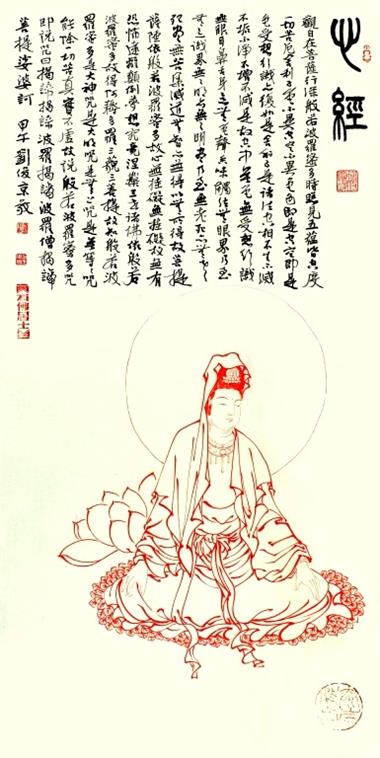 心經
觀自在菩薩行深般若波羅蜜多時照見五蘊皆空度
一切苦厄舍利子色不異空空不異色色即是空空即是
色受想行識亦復如是舍利子是諸法空相不生不滅
不垢不淨不增不減是故空中無色無受想行識
無眼耳鼻舌身意無色聲香味觸法無眼界乃至
無意識界無無明亦無無明盡乃至無老死亦無老
死盡無苦集滅道無智亦無得以無所得故菩提
薩埵依般若波羅蜜多故心無罣礙無罣礙故無有
恐怖遠離顛倒夢想究竟涅槃三世諸佛依般若
波羅蜜多故得阿耨多羅三藐三菩提故知般若波
羅蜜多是大神咒是大明咒是無上咒是無等等咒
能除一切苦真實不虛故說般若波羅蜜多咒
即說咒曰揭諦揭諦波羅揭諦波羅僧揭諦
菩提娑婆訶 甲午 劉俊京敬